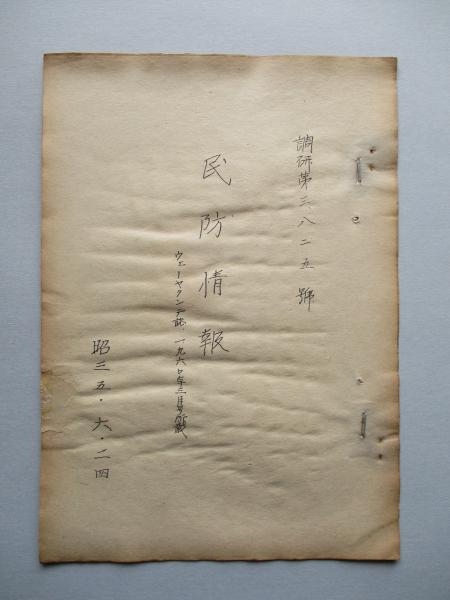 調研第三八二五號
民防情報
ウェーヤクンデ誌、一九六〇年三月号所載、
昭三五・六・二四